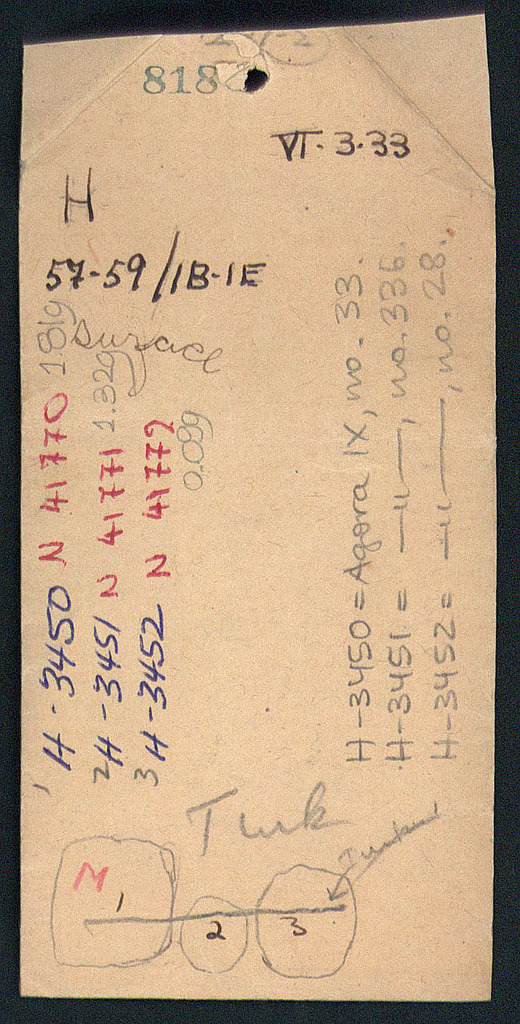 818
VI-3-33
H
57-59/1B-1E
Surface
1 H-3450 N 41770 1.81g
2 H-3451 N 41771 1.32g
3 H-3452 N 41772
H-3450 = Agora IX, no. 33.
H-3451 = —"—, no. 336.
H-3452 = —"—, no. 28.
Turk
N
1
2
3